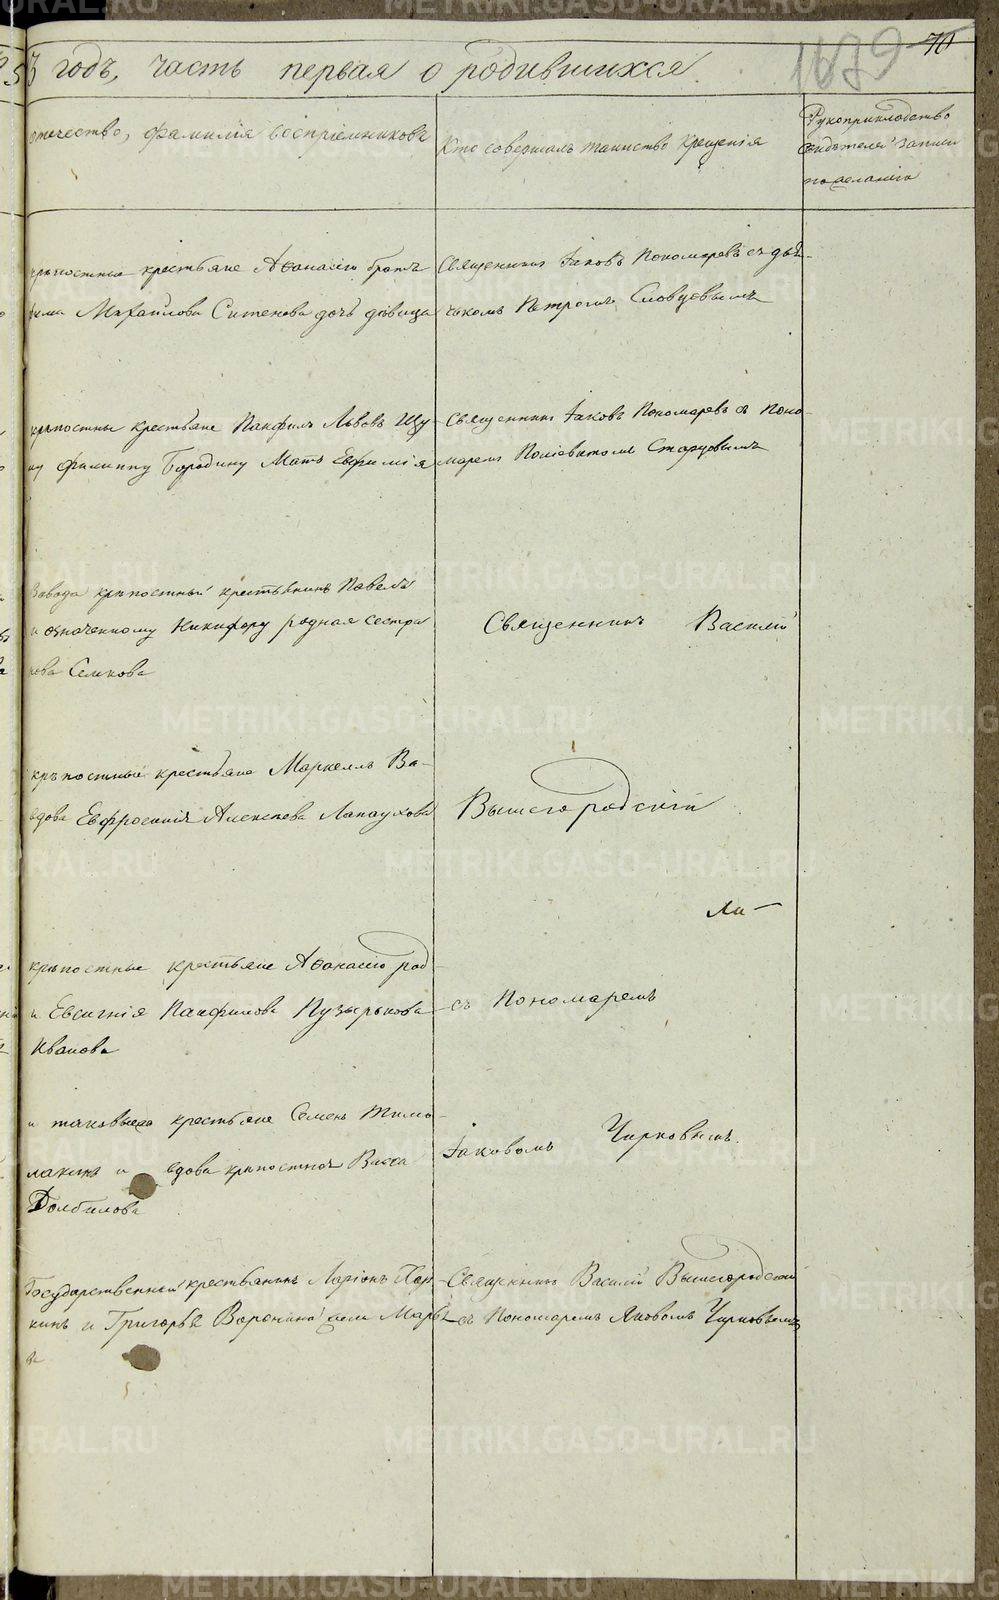 70
1679
годъ, часть первая о родившихся
отчество, фамилія воспріемниковъ
Кто совершалъ таинство крещенія
Рукоприкладство
свидѣтелей записи
по желанію
крѣпостные крестьяне Аѳанасію братъ
Михайлова Ситенова дочь дѣвица
Священникъ Іаковъ Пономаревъ съ дья-
чкомъ Петромъ Словцевымъ
крѣпостные крестьяне Панфилъ Львовъ Щу-
Филиппу Бородину Мать Евфимія
Священникъ Іаковъ Пономаревъ съ Поно-
маремъ Старцовымъ
завода крѣпостный крестьянинъ Павелъ
и означенному Никифору родная сестра
Семкова
Священникъ Василій
крѣпостные крестьяне Маркеллъ Ва-
вдова Евфросинія Алексѣева Лапаухова
Вышегородскій
крѣпостные крестьяне Аѳанасію род-
и Евгенія Панфилова Пузырькова
Иванова
съ Пономаремъ
крестьяне Семенъ Тимо-
и вдова крѣпостная Васса
Долбилова
Іаковомъ Чирковымъ.
Государственный крестьянинъ Ларіонъ
кинъ и Григорья Воронина жена Марья
Священникъ Василій Вышегородскій
съ Пономаремъ Яковомъ Чирковымъ
METRIKI.GASO-URAL.RU